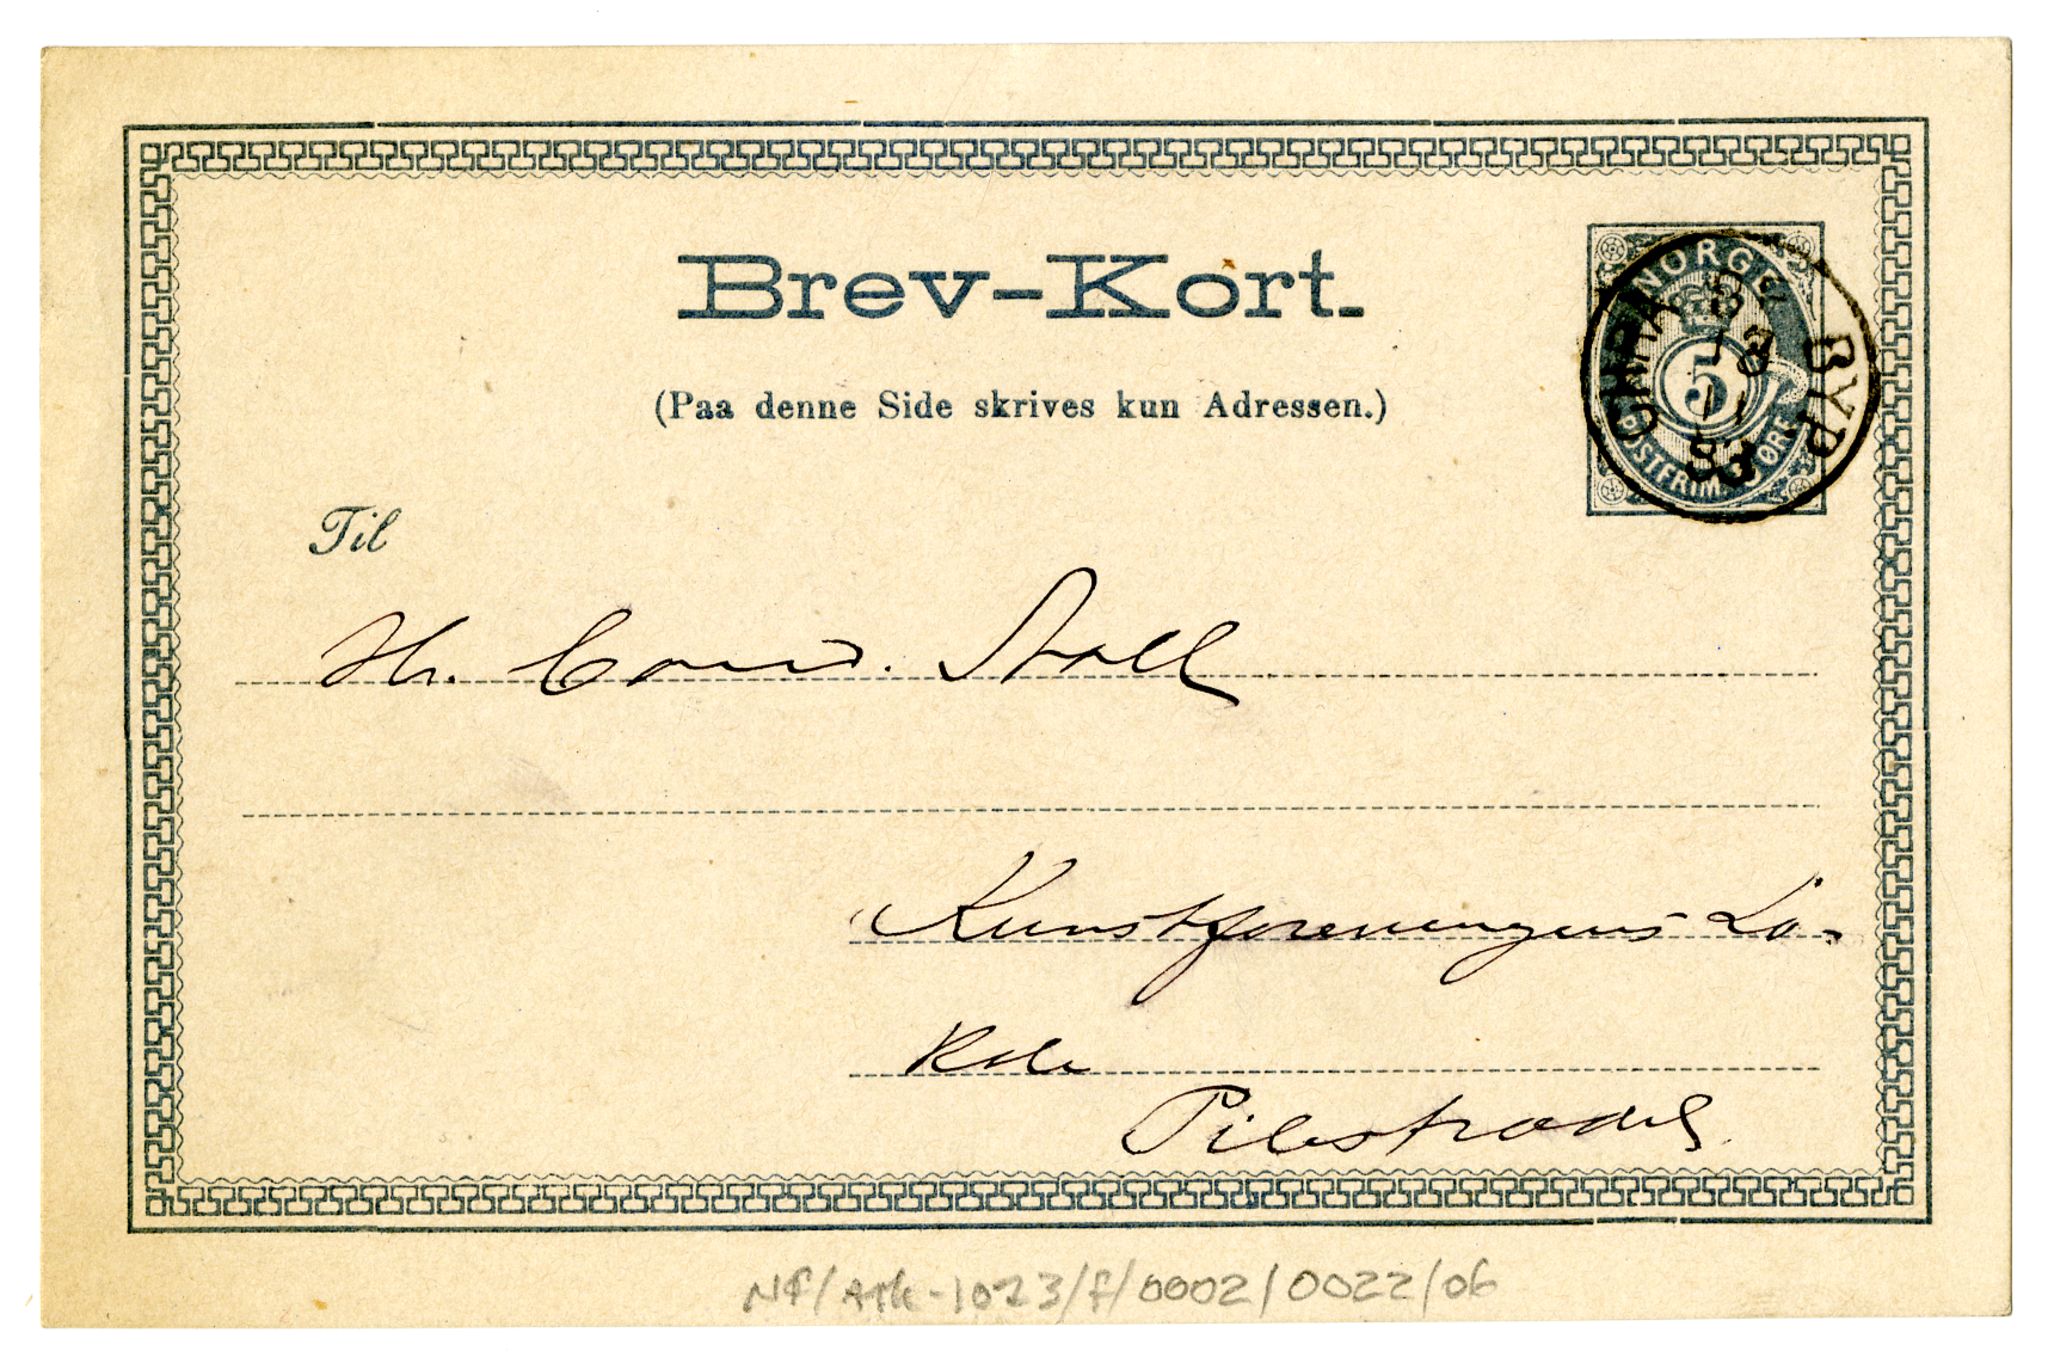 Brev-Kort.
(Paa denne Side skrives kun Adressen.)
NORGE
5
POSTFRIM. 5 ØRE
CHRA BYP
Til
Hr. Cand. Stoll
Kunstforeningens Lo-
kale
Pilestrædet
NF/Ark-1023/F/0002/0022/06